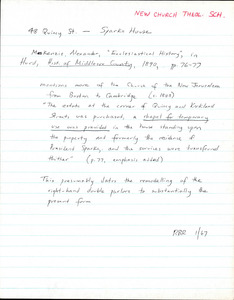 NEW CHURCH THEOL. SCH.
48 Quincy St. — Sparks House
McKenzie, Alexander, "Ecclesiastical History", in
Hurd, Hist. of Middlesex County, 1890, p. 76-77
mentions move of the Church of the New Jerusalem
from Boston to Cambridge
"The estate at the corner of Quincy and Kirkland
Streets was purchased, a chapel for temporary
use was provided in the house standing upon
the property and formerly the residence of
President Sparks, and the services were transferred
thither" (p. 77, emphasis added)
This presumably dates the remodelling of the
right-hand double parlor to substantially the
present form
1/67